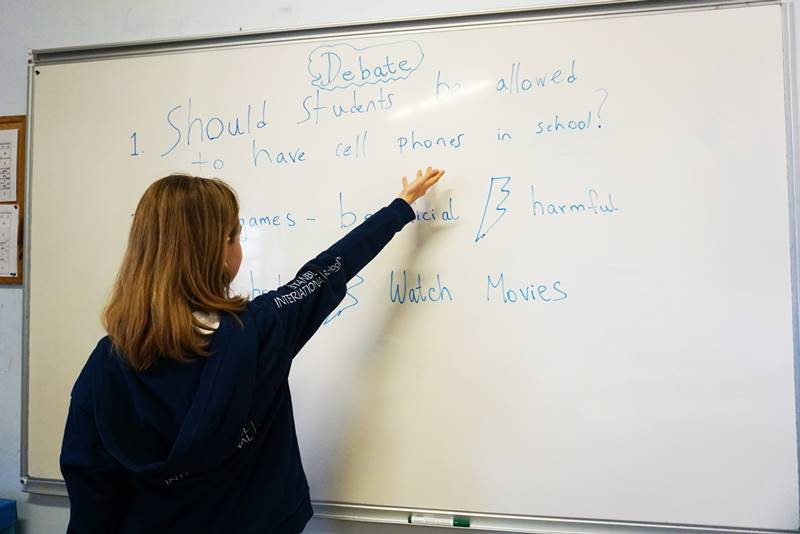 Debate
1. Should students be allowed
to have cell phones in school?
games - harmful
Watch Movies
INTERNATIONAL SCHOOL